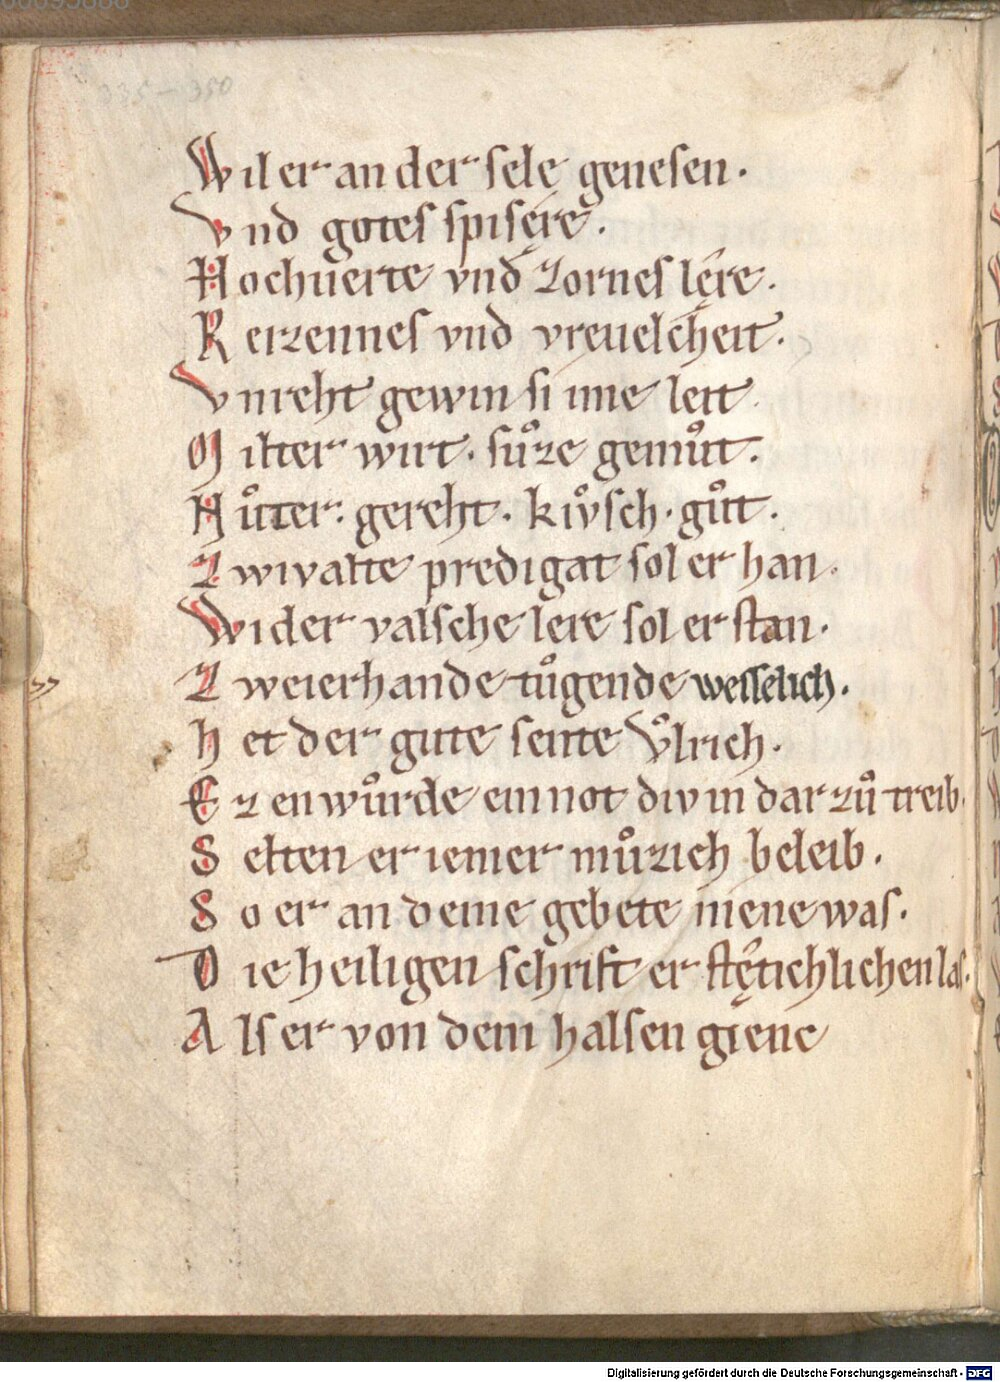 335 – 350
Wil er an der sele genesen .
Vnd gotes spisęre .
Hochuerte vnd zornes lęre .
Reizennes vnd vreuelcheit .
Vnreht gewin si ime leit .
Milter wirt . suͦze gemuͦt .
Huͦter . gereht . kivͦsch . guͦt .
Zwivalte predigat sol er han .
Wider valsche lere sol er stan .
Zweierhande tuͦgende weiselich .
het der gute sente Vͦlrich .
Ez enwuͦrde ein not div in dar zuͦ treib .
Selten er iemer muͦzich beleib .
So er an deme gebete niene was .
Die heiligen schrift er stętichlichen las .
Als er von dem halsen giene
Digitalisierung gefördert durch die Deutsche Forschungsgemeinschaft - DFG